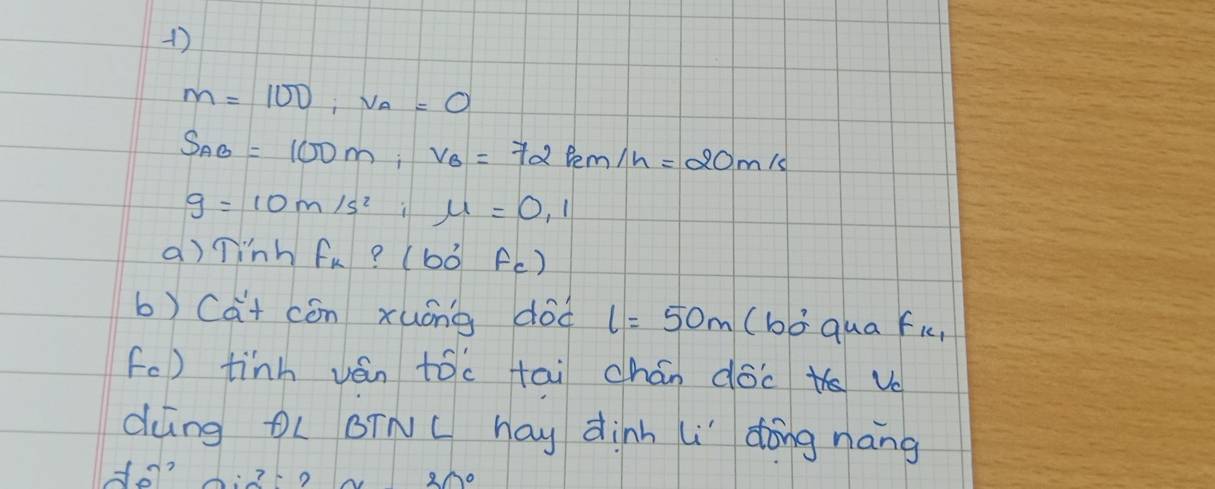 1)
m = 100 ; vA = 0
SAB = 100m ; vB = 72 km/h = 20m/s
g = 10m/s² ; μ = 0,1
a) Tính Fk ? (bỏ Fc)
b) Cắt côn xuống dốc l = 50m (bỏ qua Fk,
Fc) tính vận tốc tại chân dốc vc
dùng ĐL BTNL hay định lí động năng
để giải? α 30°